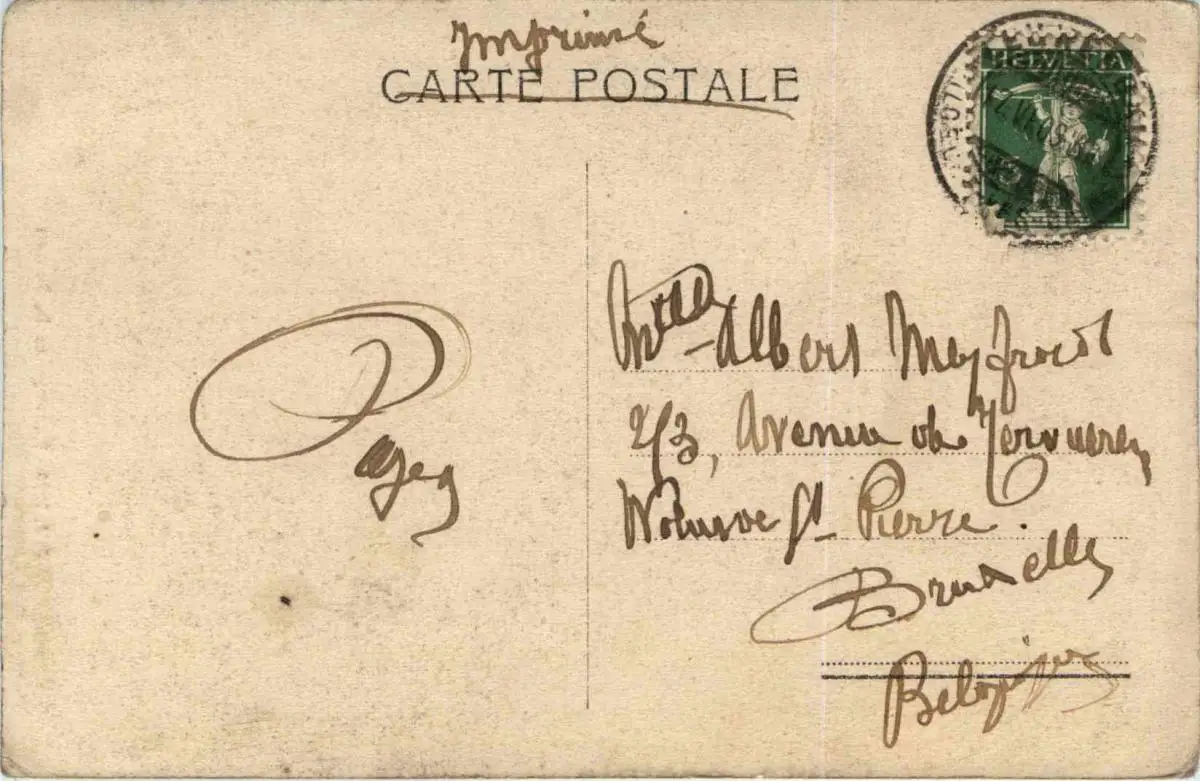 Imprimé
CARTE POSTALE
HELVETIA
Mlle Albert Meyfroidt
213, Avenue de Tervueren
Woluwe St Pierre.
Bruxelles
Belgique